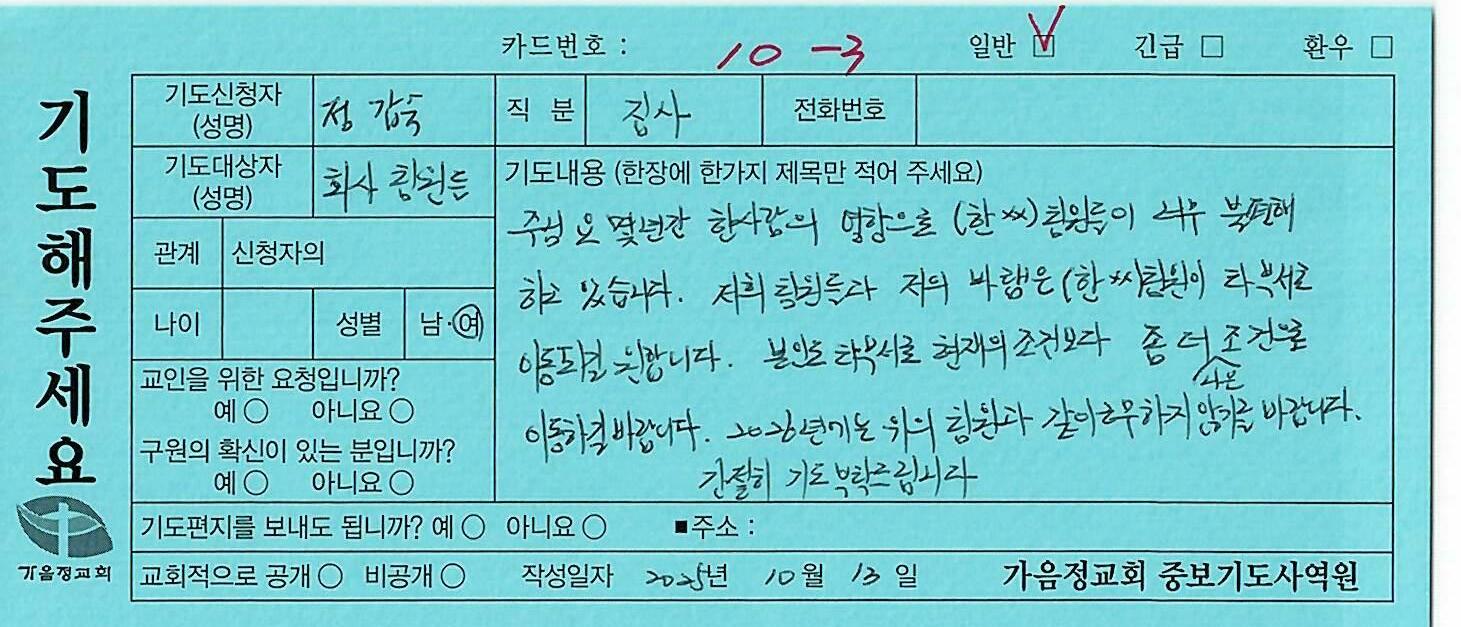 카드번호 : 10-3 일반 ☑ 긴급 □ 환우 □
기도해주세요
가음정교회
기도신청자 (성명) 정갑숙 직 분 집사 전화번호
기도대상자 (성명) 회사 팀원들
관계 신청자의
나이 성별 남·여
교인을 위한 요청입니까?
예 ○ 아니요 ○
구원의 확신이 있는 분입니까?
예 ○ 아니요 ○
기도내용 (한장에 한가지 제목만 적어 주세요)
주님 요 몇년간 한사람의 영향으로 (한 ××) 팀원들이 너무 불편해
하고 있습니다. 저희 팀원들과 저의 바램은 (한 ××)팀원이 타부서로
이동되길 원합니다. 본인도 타부서로 현재의 조건보다 좀 더 나은 조건으로
이동하길 바랍니다. 2026년에는 위의 팀원과 같이 근무하지 않기를 바랍니다.
간절히 기도 부탁드립니다
기도편지를 보내도 됩니까? 예 ○ 아니요 ○ ■주소 :
교회적으로 공개 ○ 비공개 ○ 작성일자 2025년 10월 13일 가음정교회 중보기도사역원